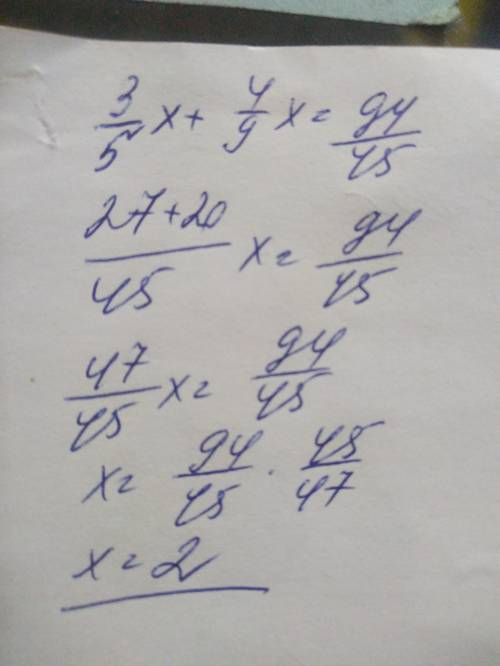 3/5 x + 4/9 x = 94/45
27+20/45 x = 94/45
47/45 x = 94/45
x = 94/45 · 45/47
x = 2